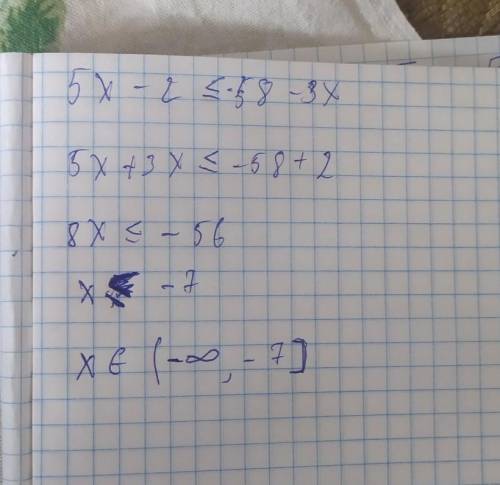 5x - 2 ≤ -58 - 3x
5x + 3x ≤ -58 + 2
8x ≤ - 56
x ≤ - 7
x ∈ (-∞, -7]